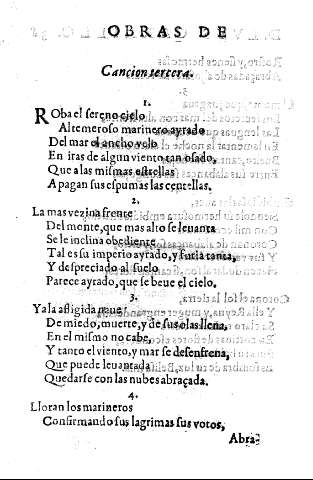 OBRAS DE
Cancion tercera.
1.
Roba el sereno cielo
Al temeroso marinero ayrado
Del mar el ancho velo
En iras de algun viento tan osado,
Que a las mismas estrellas
Apagan sus espumas las centellas.
2.
La mas vezina frente
Del monte, que mas alto se leuanta
Se le inclina obediente
Tal es su imperio ayrado, y furia tanta,
Y despreciado al suelo
Parece ayrado, que se beue el cielo.
3.
Ya la afligida naue
De miedo, muerte, y de sus olas llena,
En el mismo no cabe,
Y tanto el viento, y mar se desenfrena,
Que puede leuantada
Quedarse con las nubes abraçada.
4.
Lloran los marineros
Confirmando sus lagrimas sus votos,
Abra-